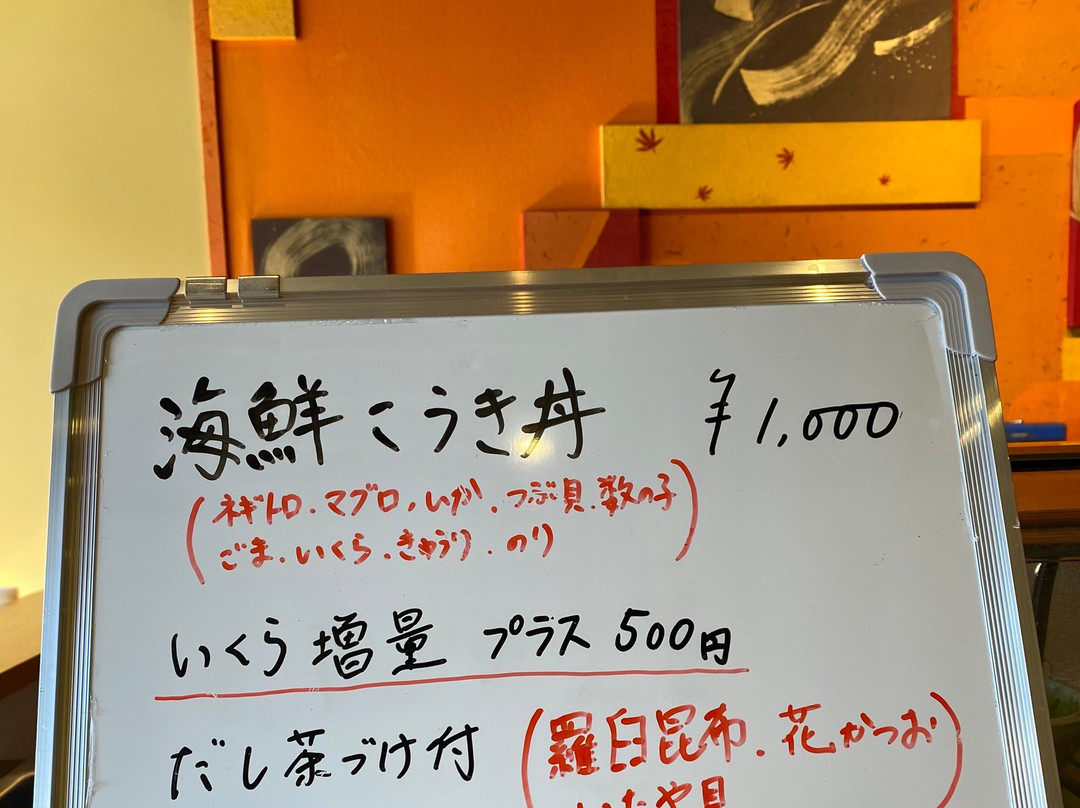 海鮮こうき丼 ¥1,000
(ネギトロ.マグロ.いか.つぶ貝.数の子
ごま.いくら.きゅうり.のり)
いくら増量 プラス 500円
だし茶づけ付 (羅臼昆布.花かつお
いたや貝